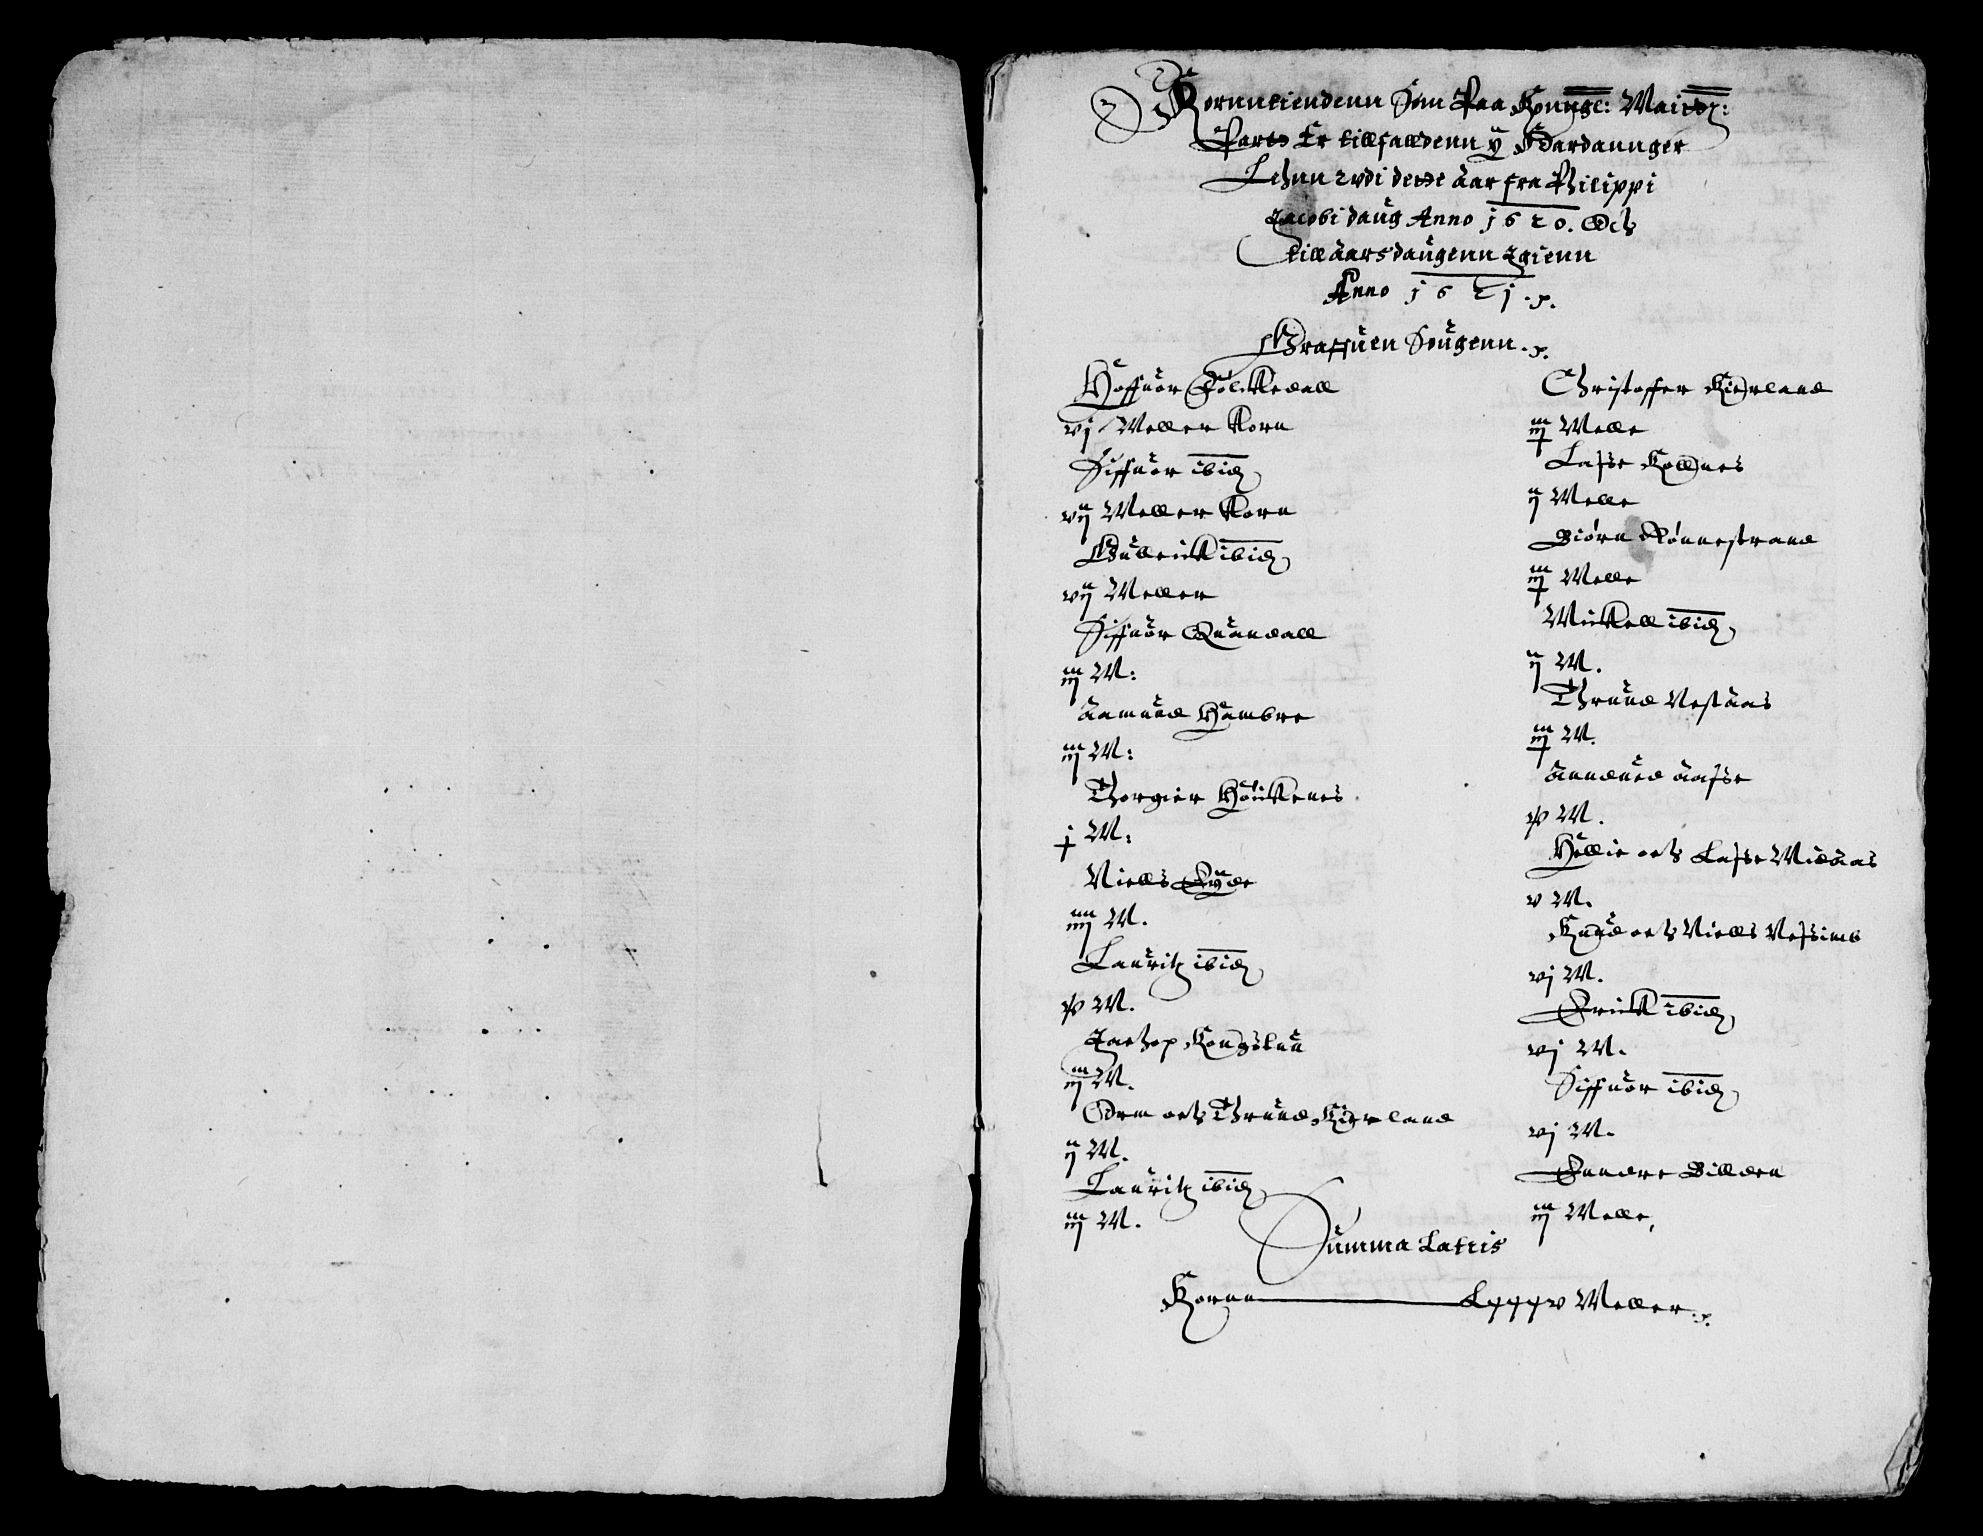 Kornntiendenn Som Paa Konngl: Maietz:
Partt Er tillfalldenn ÿ Hardannger
Lehnn Udi dette Aar fra Philippi
Jacobi daug Anno 1620. Och
till Aarsdaugenn Igienn
Anno 1621.
Graffuen Sougenn.
Hoffuor Folckedall
vj Meller Korn
Siffuor ibid
vij Meller Korn
Gulleick ibid
vij Meller
Siffuor Quandall
iij M:
Aamund Hambre
iij M:
Thorgier Houckenes
j M:
Niells Eyde
iiij M.
Lauritz ibid
v M.
Jachop Kongstun
iij M.
Orm och Thrund Kierland
ij M.
Lauritz ibid
iij M.
Christoffer Kierland
iij Melle
Lasse Kollnes
ij Melle
Biørn Rønnestrand
iij Melle
Mickell ibid
ij M.
Thrund Nestaas
iij M.
Anndued Aasse
v M.
Hellie och Lasse Midaas
v M.
Knud och Niells Nessimb
vj M.
Erick ibid
vj M.
Siffuor ibid
vj M.
Enndre Billden
iij Melle,
Summa Lateris
Kornn Lxxxv Meller.